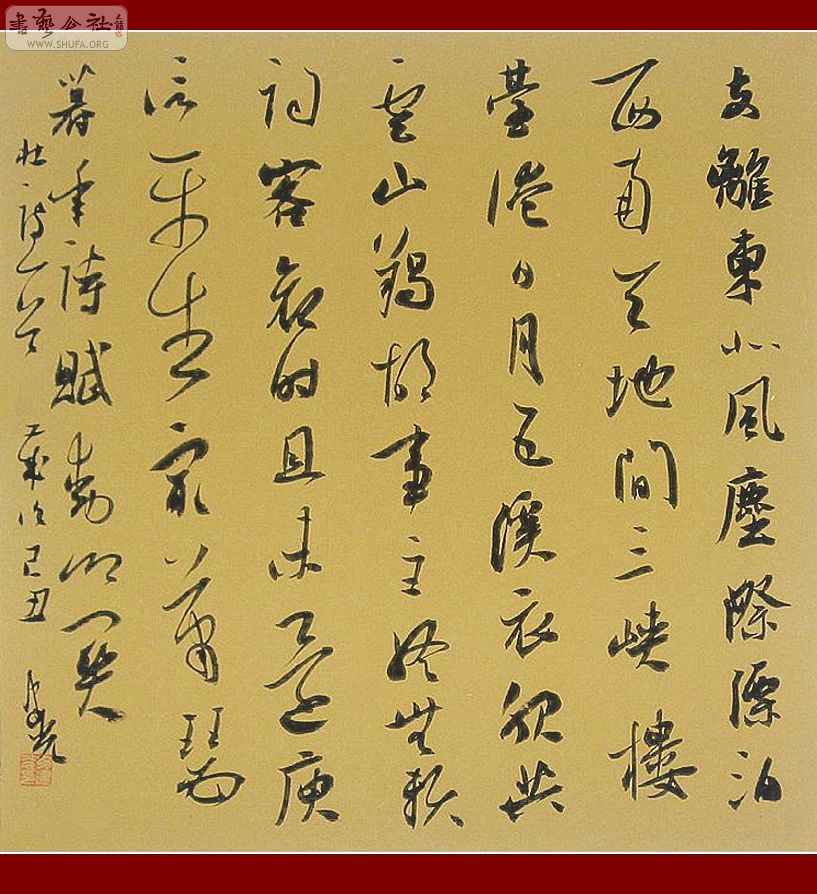 書藝公社
WWW.SHUFA.ORG
支離東北風塵際漂泊
西南天地間三峽樓
臺淹日月五溪衣服共
雲山羯胡事主終無賴
詞客哀時且未還庾
信平生最蕭瑟
暮年詩賦動江關
杜詩一首 歲次己丑